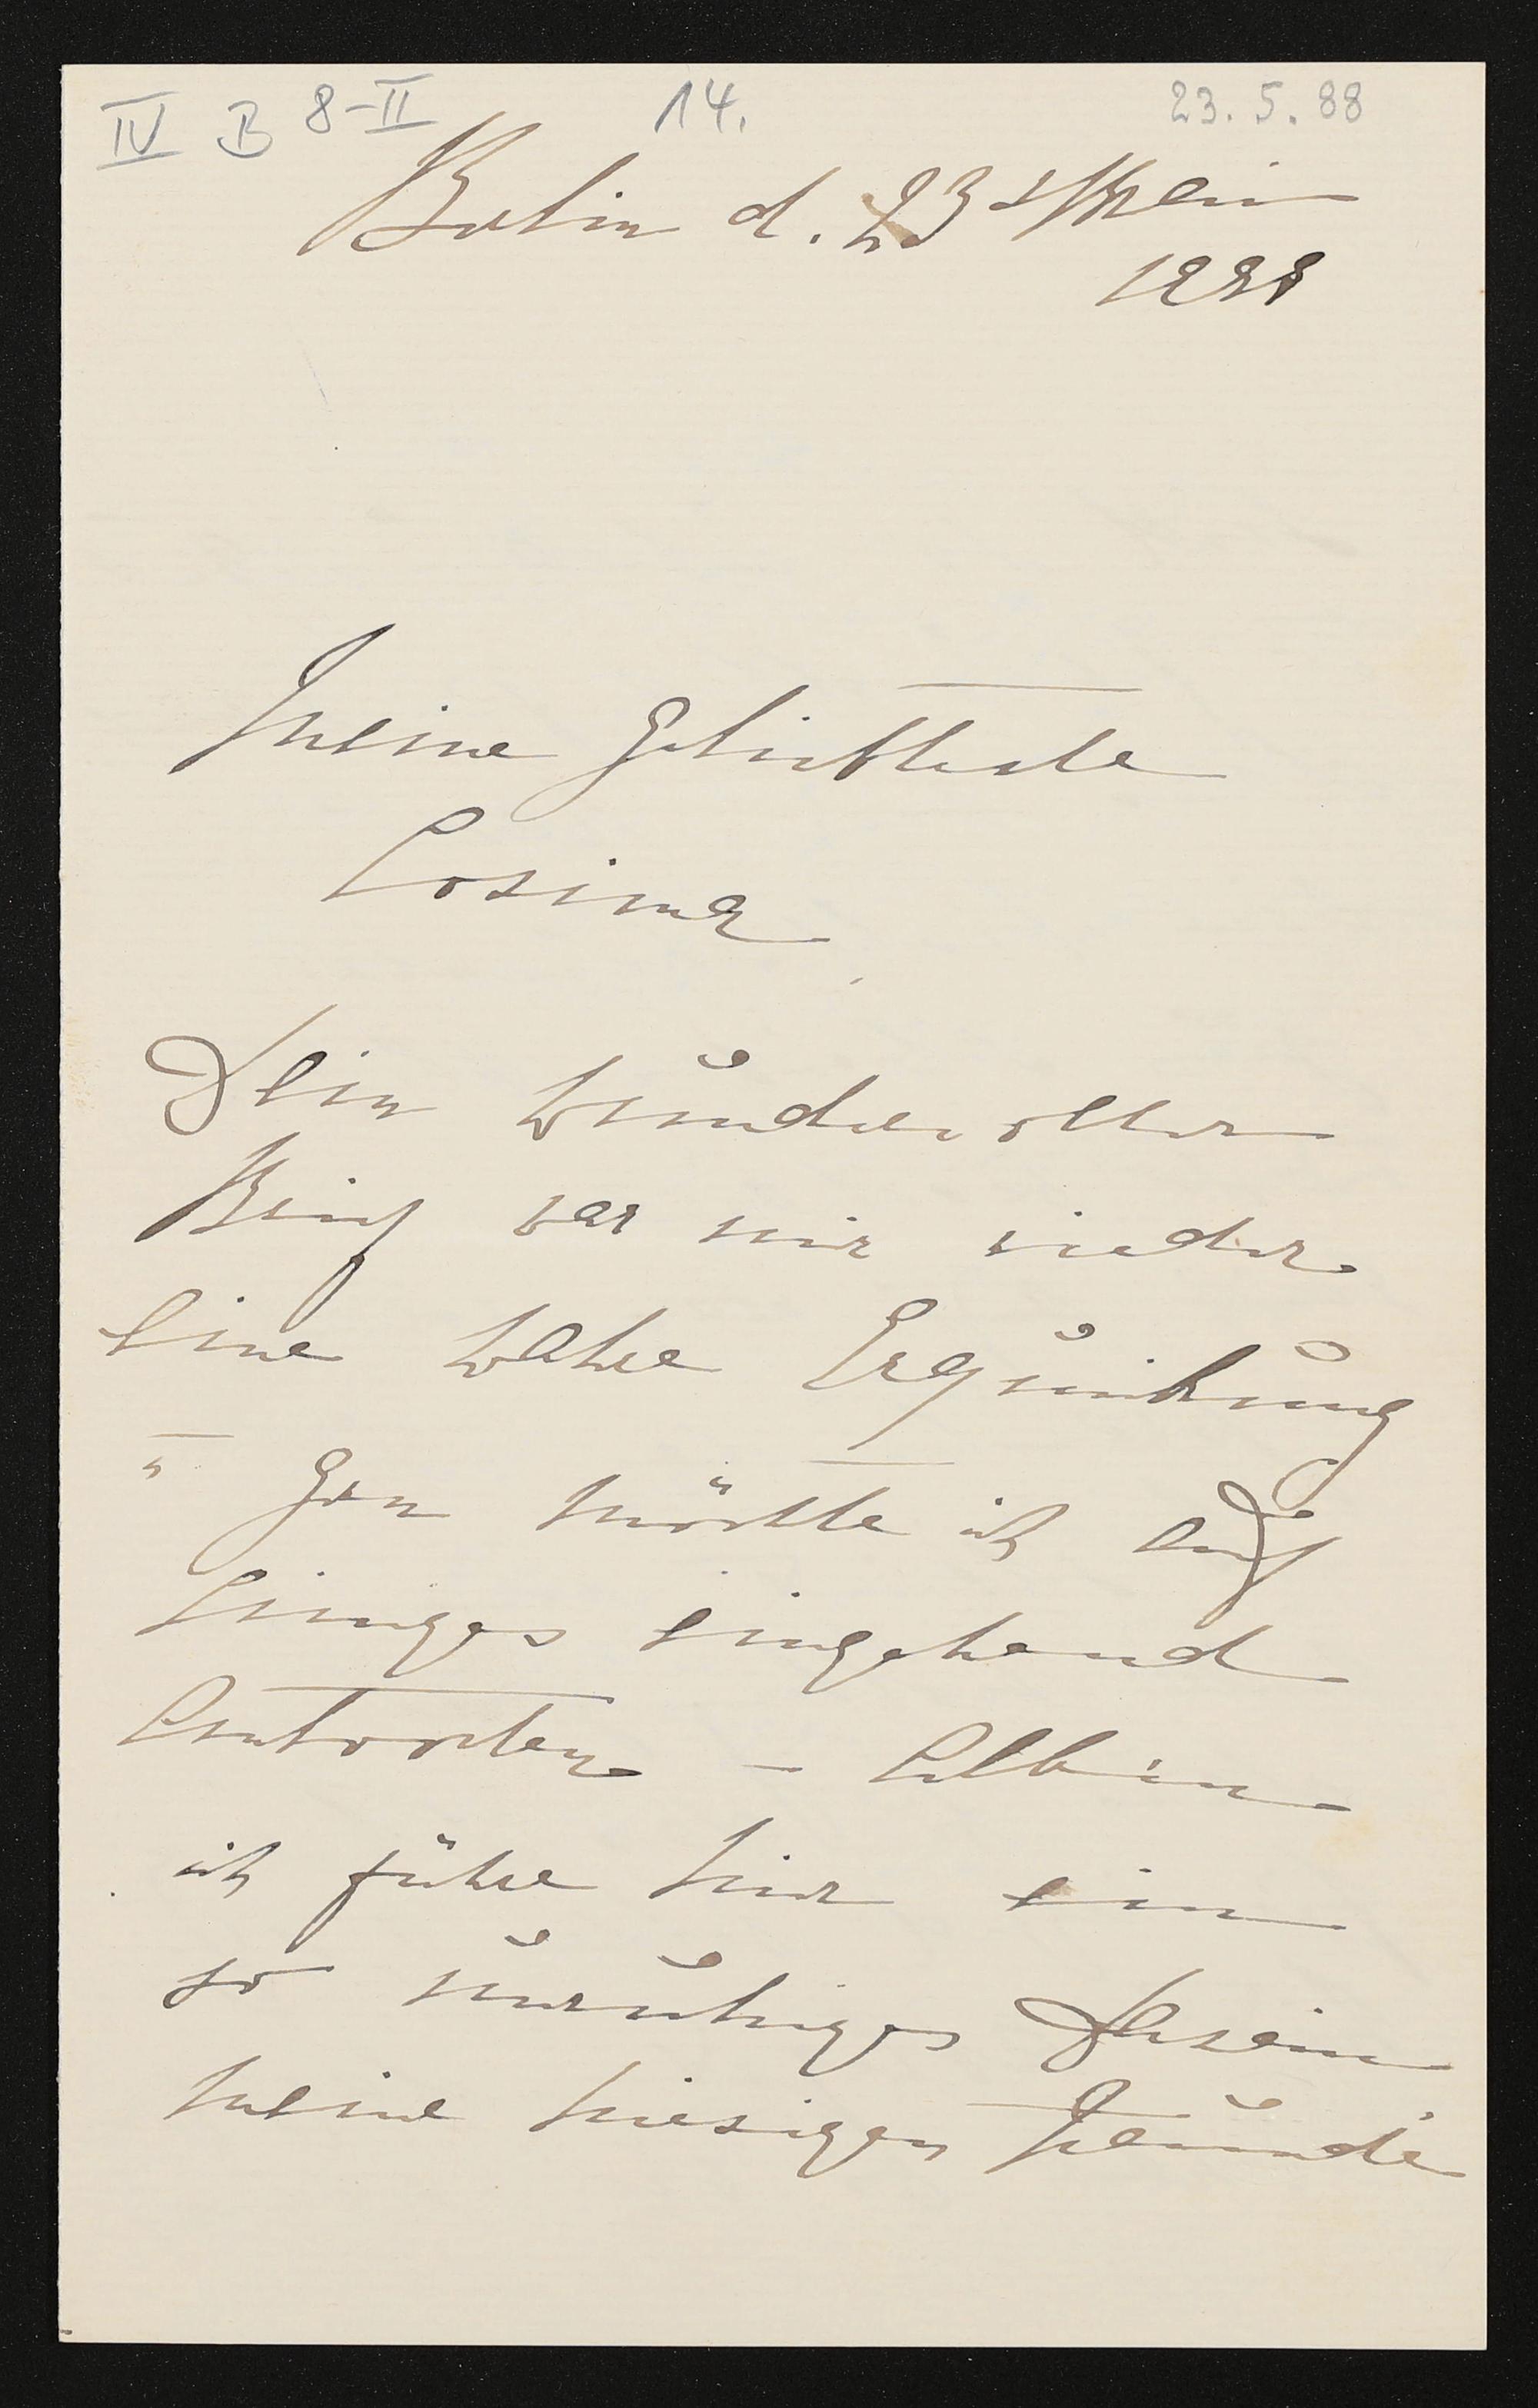 IV B 8-II 14. 23.5.88
Berlin d. 23st Mai
1888
Meine geliebteste
Cosima
Dein wundervoller
Brief war mir wieder
eine wahre Erquickung
u gern möchte ich auf
Einiges eingehend
Antworten – Allein
ich führe hier ein
so unruhiges Dasein
meine hiesigen Freunde